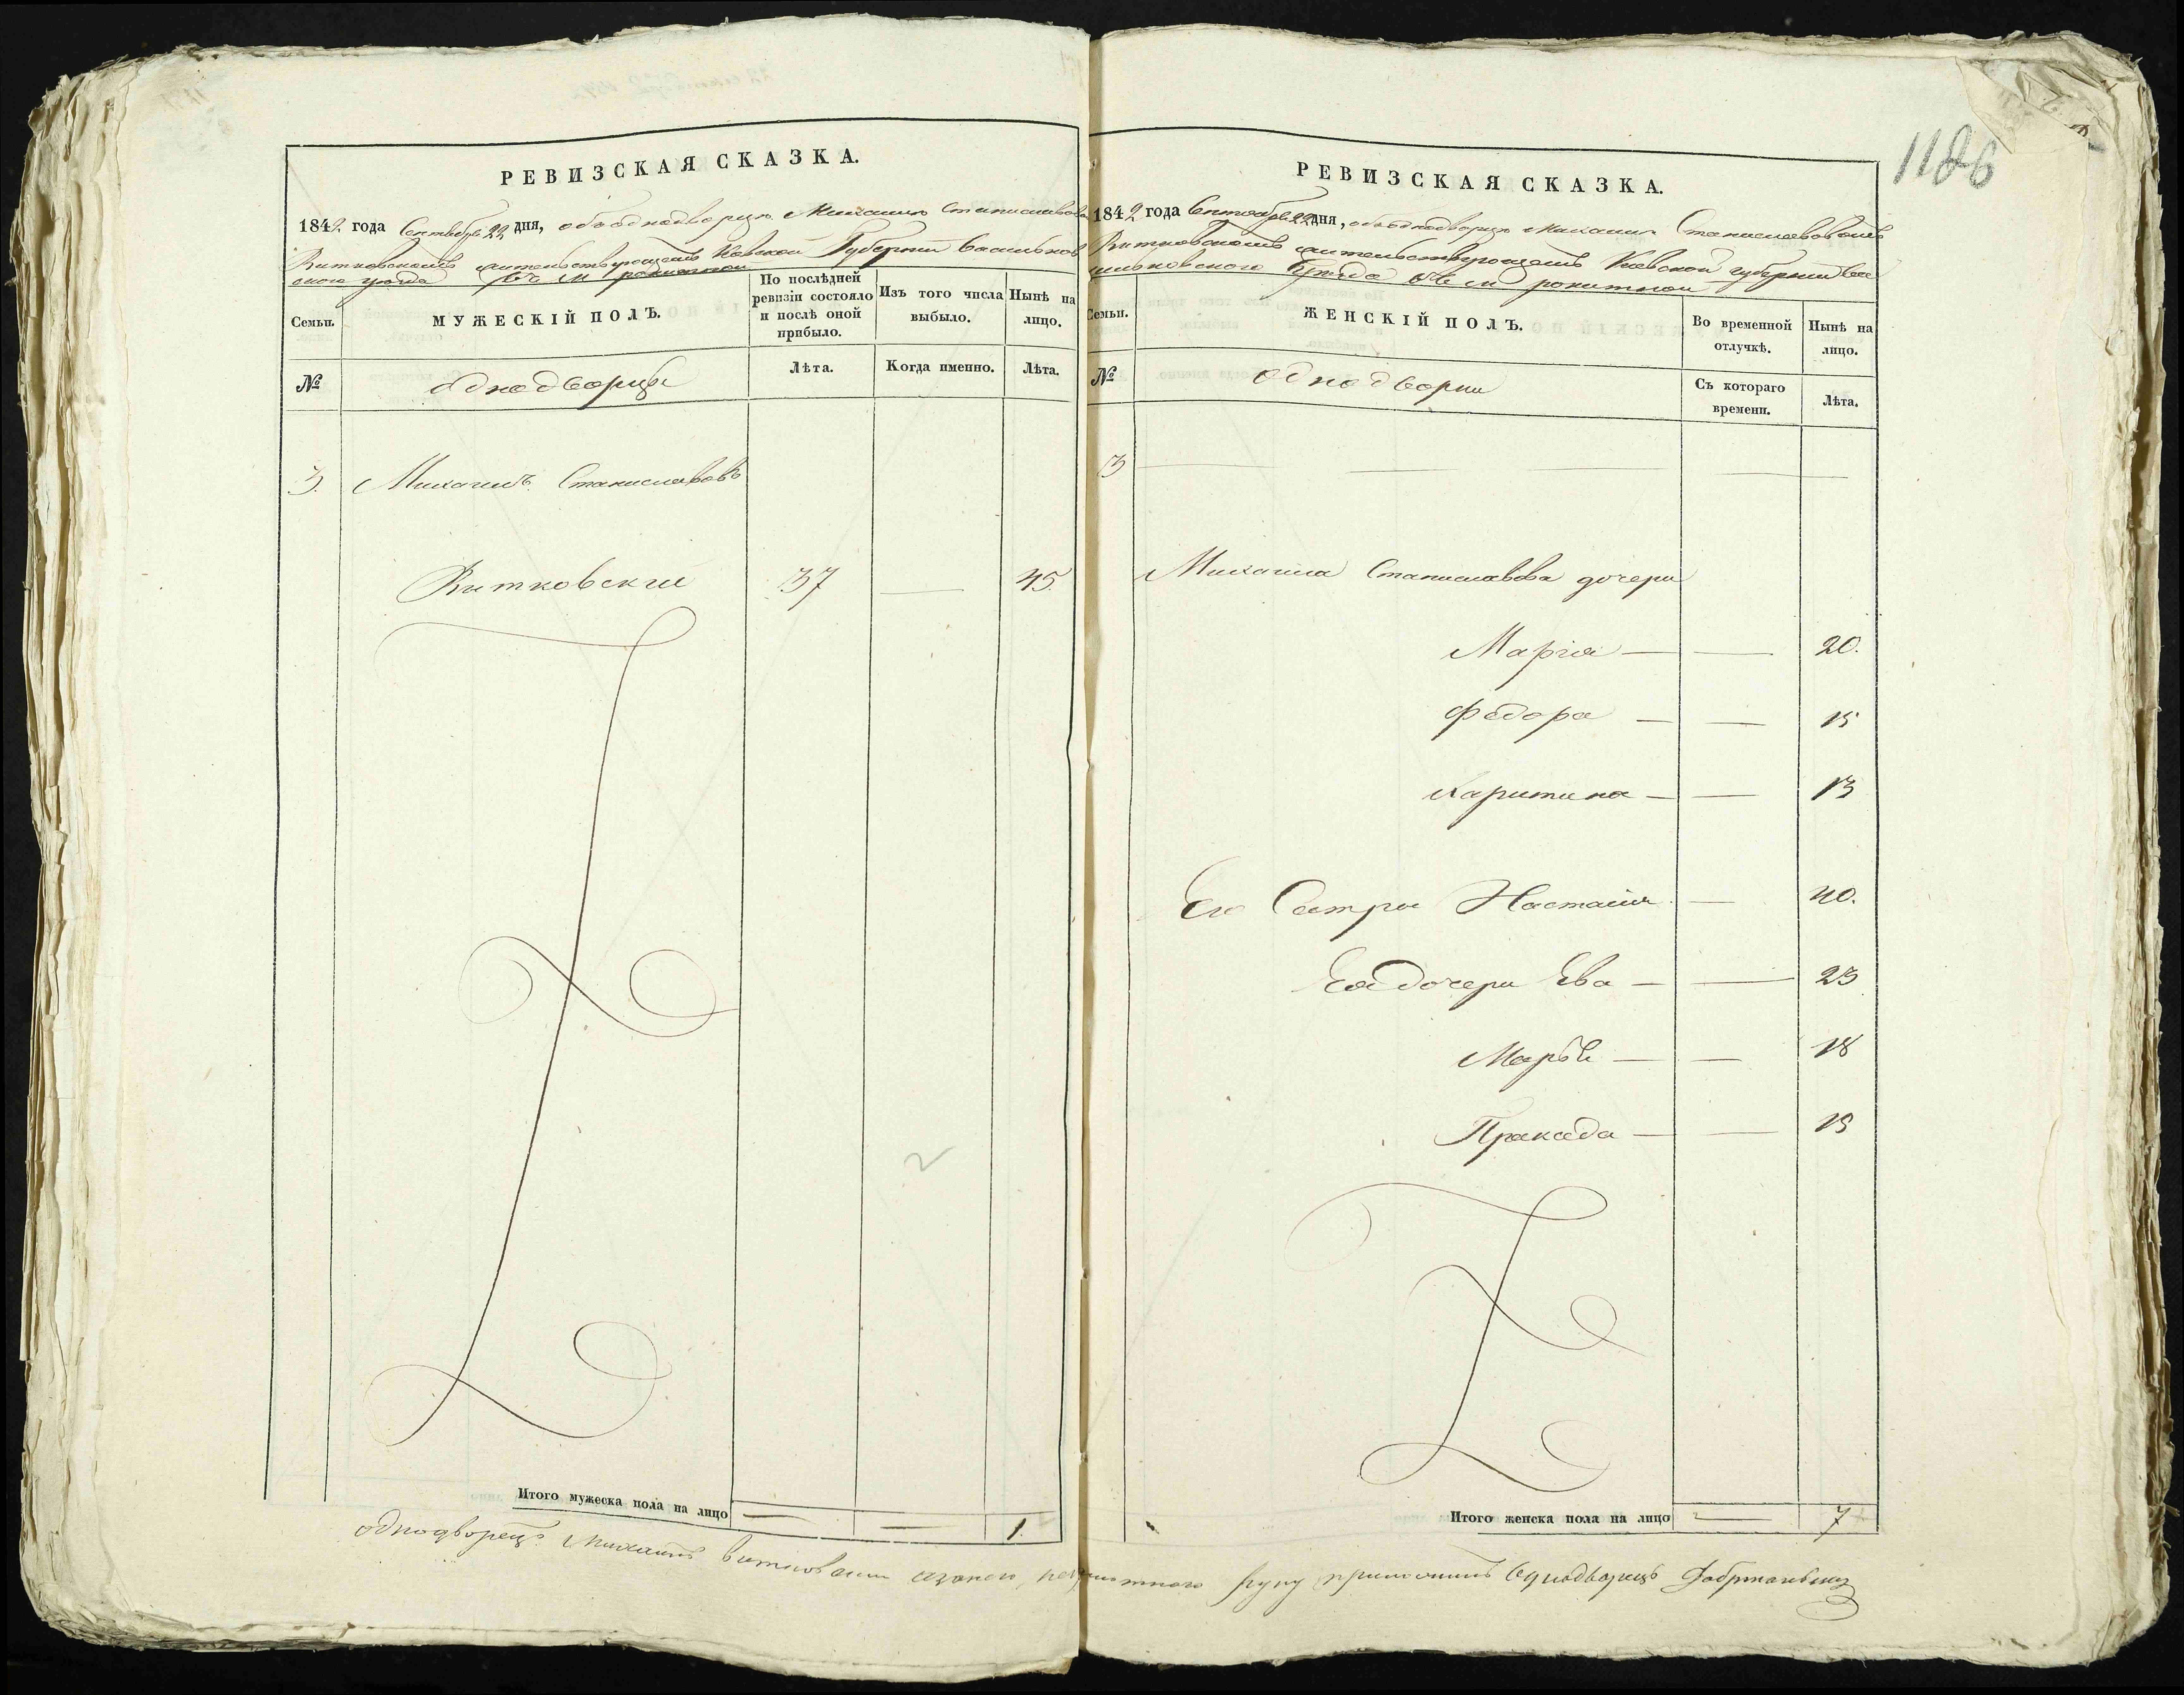 РЕВИЗСКАЯ СКАЗКА.
1842 года Сентября 22 дня, объ однодворцѣ Михаилѣ Станиславовѣ
Витковскомъ жительствующемъ Кіевской Губерніи Васильков
скаго уѣзда въ м рокитной
Семьи. МУЖЕСКІЙ ПОЛЪ. По послѣдней ревизіи состояло и послѣ оной прибыло. Изъ того числа выбыло. Нынѣ на лицо.
№ однодворцы Лѣта. Когда именно. Лѣта.
3. Михаилъ Станиславовъ
Витковскій 37 — 45.
Итого мужеска пола на лицо — — 1.
1186
РЕВИЗСКАЯ СКАЗКА.
1842 года Сентября 22 дня, объ однодворцѣ Михаилѣ Станиславовомъ
Витковскомъ жительствующемъ Кіевской губерніи Ва
сильковского Уѣзда въ м рокитной
Семьи. ЖЕНСКІЙ ПОЛЪ. Во временной отлучкѣ. Нынѣ на лицо.
№ однодворки Съ котораго времени. Лѣта.
3
Михаила Станиславова дочери
Марія — — 20.
Федора — — 15
Харитина — — 13
Его Сестра Настасія — 40.
Ея дочери Ева — — 23
Марья — — 18
Пракседа — — 15
Итого женска пола на лицо — 7
однодворецъ Михаилъ Витковскій а за него неграмотного руку приложилъ Однодворецъ